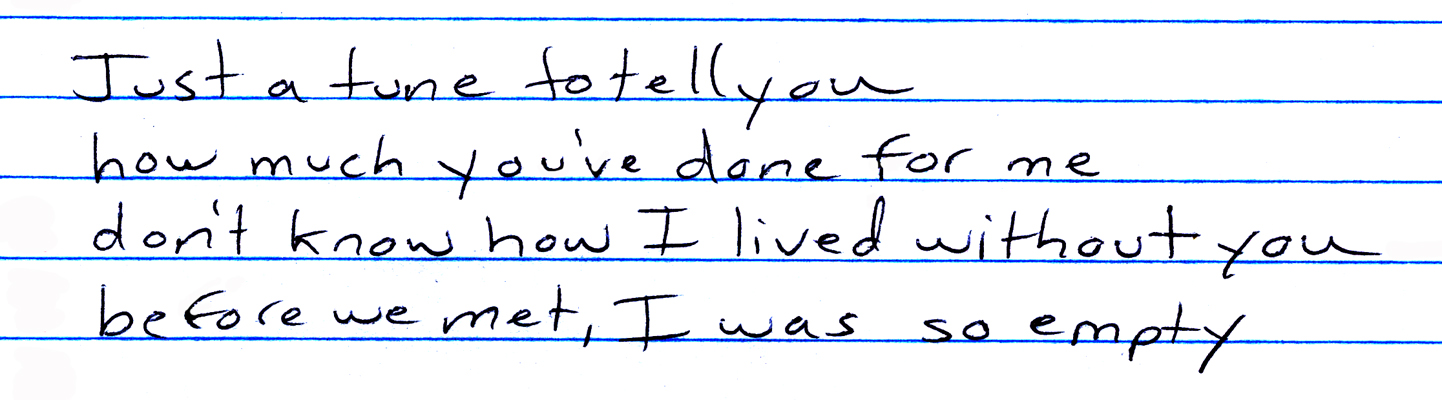 Just a tune to tell you
how much you've done for me
don't know how I lived without you
before we met, I was so empty